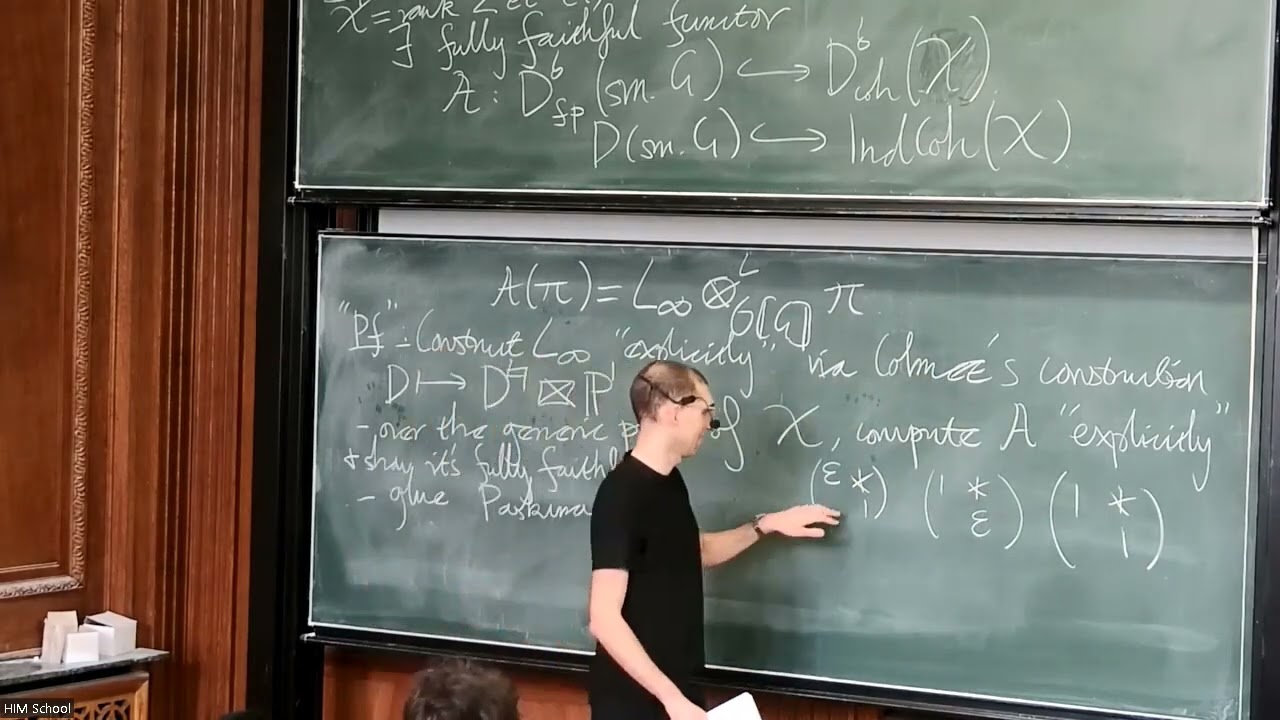 X = rank 2
∃ fully faithful functor
A : D^b_fp (sm. G) ↪ D^b_coh (X)
D(sm. G) ↪ IndCoh(X)
A(π) = L_∞ ⊗^L_O[[G]] π
"Pf": Construct L_∞ "explicitly" via Colmez's construction
D ↦ D^♮ ⊠ P^1
- over the generic of X, compute A "explicitly"
+ show it's fully
- glue
(ε * 1) (1 * ε) (1 * 1)
HIM School